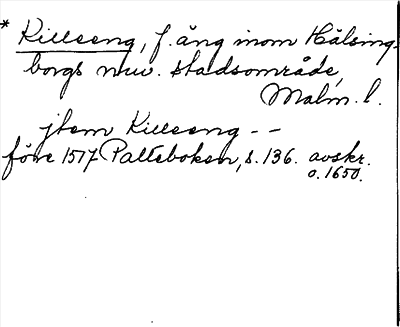 * Killeeng, f. äng inom Hälsing-
borgs nuv. stadsområde,
Malm. l.
jtem Killeeng - -
före 1517 Palteboken, s. 136. avskr.
o. 1650.